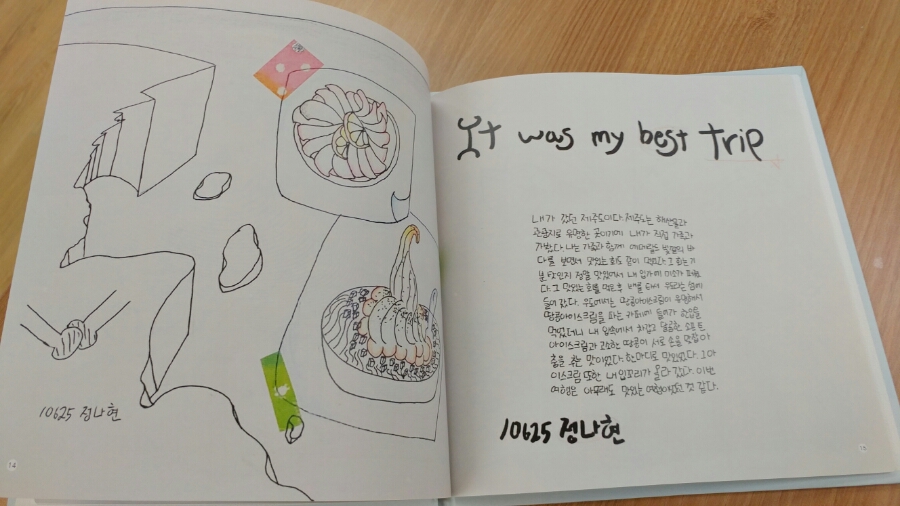 10625 정나현
14
It was my best trip
내가 갔던 제주도이다. 제주도는 해산물과
관광지로 유명한 곳이기에 내가 직접 가족과
가봤다. 나는 가족과 함께 에메랄드 빛깔의 바
다를 보면서 맛있는 회도 같이 먹었다. 그 회는 기
분 탓인지 정말 맛있어서 내 입가에 미소가 퍼졌
다. 그 맛있는 회를 먹은 후 배를 타서 우도라는 섬에
들어갔다. 우도에서는 땅콩아이스크림이 유명해서
땅콩아이스크림을 파는 카페에 들어가
먹었더니 내 입속에서 차갑고 달콤한 소프트
아이스크림과 고소한 땅콩이 서로 손을 맞잡아
춤을 추는 맛이었다. 한마디로 맛있었다. 그 아
이스크림 또한 내 입꼬리가 올라갔다. 이번
여행은 아무래도 맛있는 여행이었던 것 같다.
10625 정나현
15